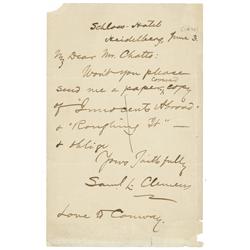 Schloss-Hotel
Heidelberg, June 3.
My Dear Mr. Chatto:
Won't you please
send me a paper covered copy
of "Innocents Abroad"
& "Roughing It" —
& oblige
Yours Faithfully
Saml L. Clemens
Love to Conway.